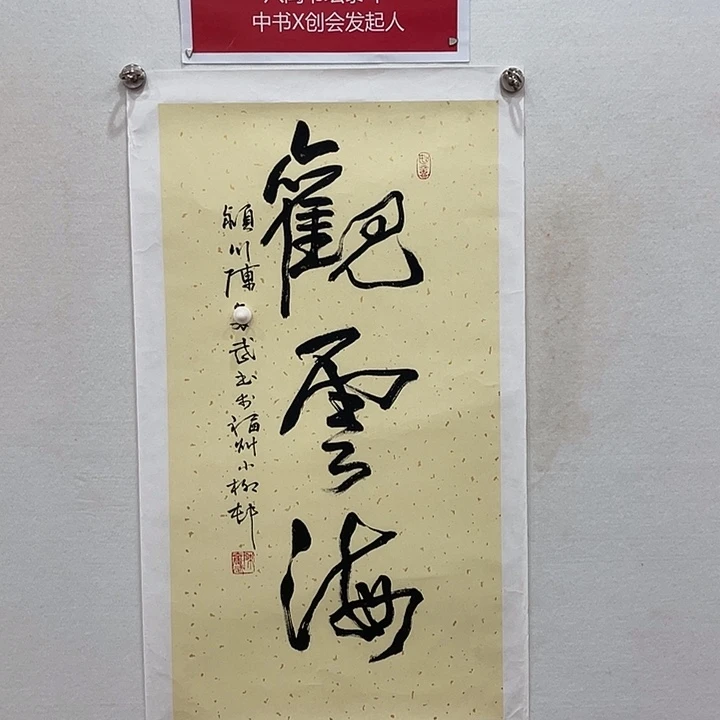 中书X创会发起人
觀雲海
颍川陳
武书於福州小柳邨